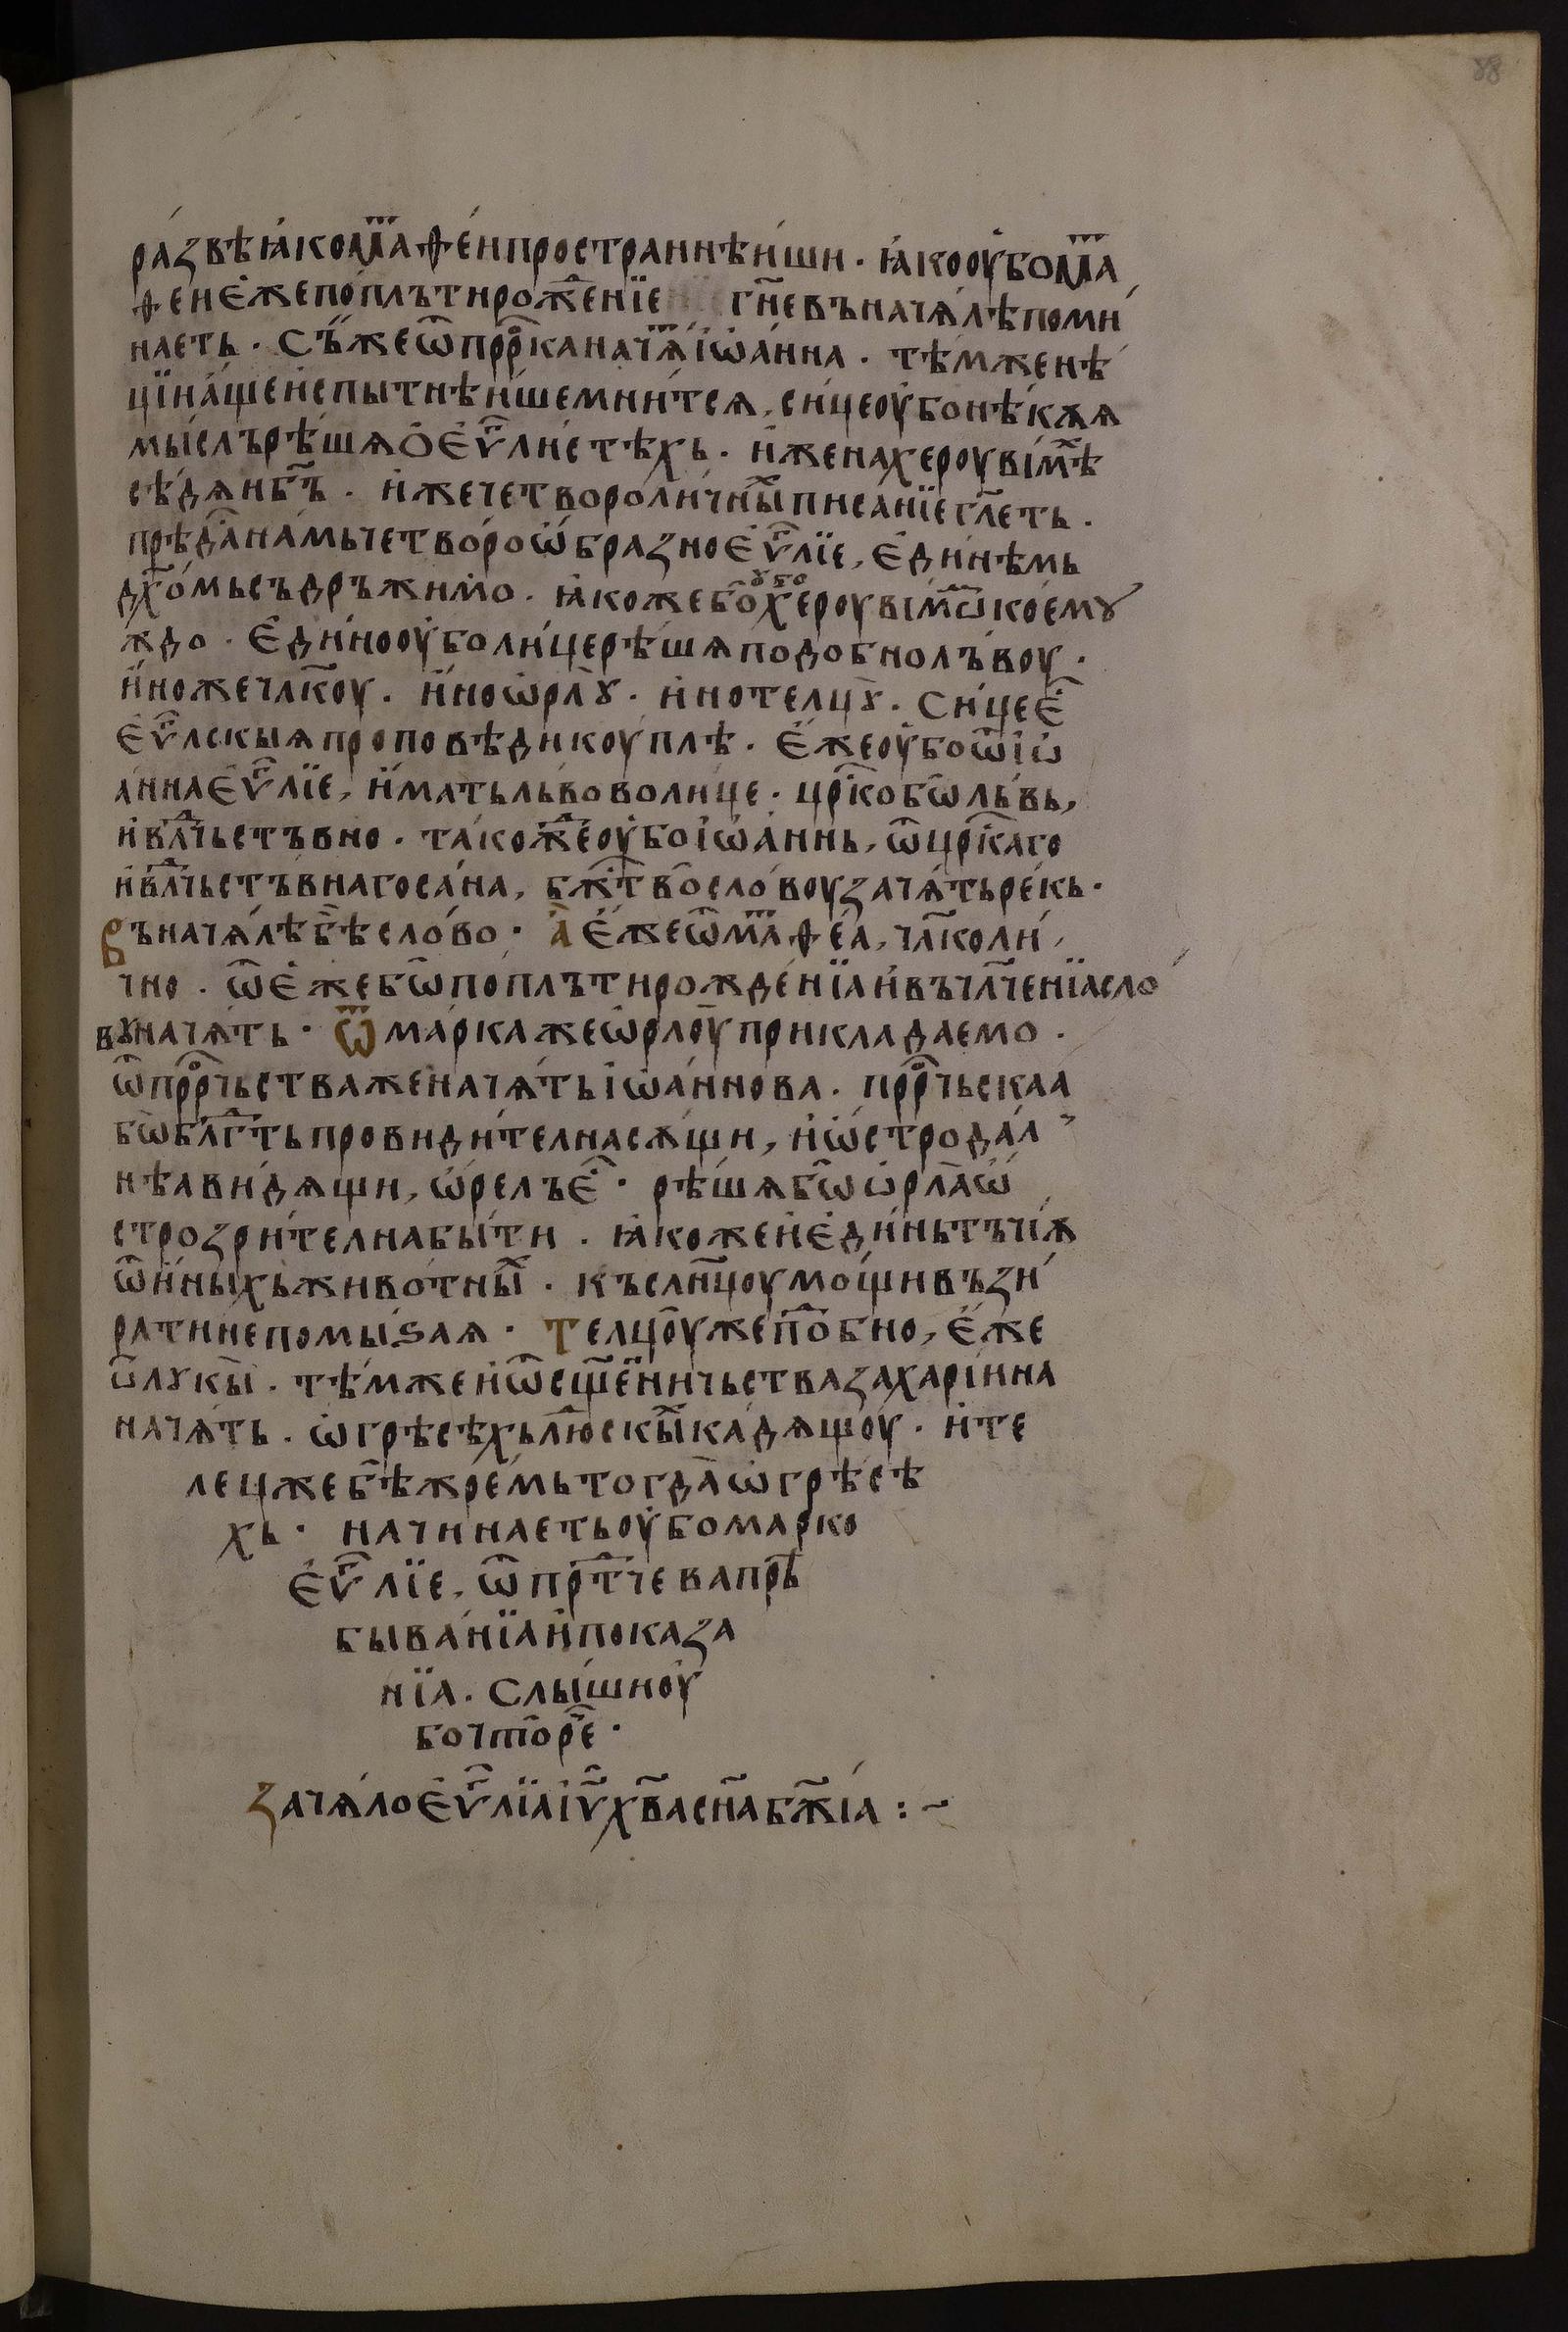 88
ра́звѣꙗ҆кома́ѳе́ипространнѣ́иши · ꙗ҆кооу҆бома́
ѳеие҆жепо́плътирож҃е́нїе гн҃евъначѧ́лѣпоми́
наеть · Съ́жеѿпррⷪ҇каначѧ́і҆ѡа́нна · тѣ́мженѣ́
цїина́щеи҆спытнѣ́ишемни́тсѧ, си́цеоу҆бонѣ́каѧ
мы́слърѣ́шѧѻ҆е҆ѵⷢ҇ли́стѣхь · и҆женахероувімⷯѣ
сѣдѧ́ибг҃ъ · и҆жечетвороли́чныⷨписанїегл҃еть ·
прѣда́на́мьчетво́роѡ҆́бразное҆ѵⷢ҇лїе, є҆ди́нѣмь
дх҃о́мьсъдръжи́мо · ꙗ҆кожебоꙋбохероувімⷨѡкоемꙋ
ждо · Є҆ди́нооу҆боли́церѣ́шѧподобнолъ́воу ·
и҆́ножечл҃коу · и҆́ноѡ҆рлꙋ̀ · и҆нотелцꙋ̀ · Си́цеє҆ⷭ҇
є҆ѵⷢ҇лскыѧпроповѣ́дикоуплѣ · Є҆́жеоу҆боѿіѡ
а́ннає҆ѵⷢ҇лїе, и҆́матьльвоволи́це · црⷭ҇кобѡль́вь,
и҆влⷣчьстъвно · та́кожⷣеоу҆боіѡ҆а́ннь, ѿцрⷭ҇каго
и҆влⷣчьстъвнагоса́на, бжⷭ҇твⷪсло́воузачѧ́тьре́кь ·
Въначѧ́лѣбѣ̀сло́во · а҆̀є҆́жеѿма́ѳе́а, чл҃коли́
чно · ѿє҆́жебѡпоплътирожде́нїаи҆въчл҃че́нїасло́
вꙋначѧ́ть · ѿма́ркажеѡ҆рлоу̀прикладаемо ·
ѿпррⷪ҇чьстваженачѧ́тьі҆ѡа́ннова · пррⷪ҇чьскаа
бѡблгⷣтьпровиди́телнасѫщи, и҆ѡ҆стродал
нѣави́дѧщи, ѡ҆релъє҆ⷭ҇ · рѣ́шѧбѡѡ҆рла̀ѡ҆́
строзри́телнабы́ти · ꙗ҆кожеи҆є҆ди́ньтъчі́ѫ
ѿи҆́ныхьживо́тныⷯ · късл҃нцоумо́щивъзи́
ратинепомы́ѕаѧ · Телцоу̀жепⷣо́бно, є҆́же
ѿлꙋкы̀ · тѣ́мжеи҆ѿсщ҃е́нничьствазахарі́ина
начѧ́ть · ѡ҆грѣсѣ́хьлюⷣскыⷯка́дѧщоу · и҆те
лецжебѣ̀жре́мьтогда̀ѡ҆грѣсѣ
хь · начинаетьоу҆бомарко
є҆ѵⷢ҇лїе, ѿпрⷣтчевапрѣ
быва́нїаи҆показа
нїа · Слы́шиоу҆
бочторⷱ҇е ·
Зачѧ́лоє҆ѵⷢ҇лїаіѵ҃х҃васн҃абж҃їа : ~